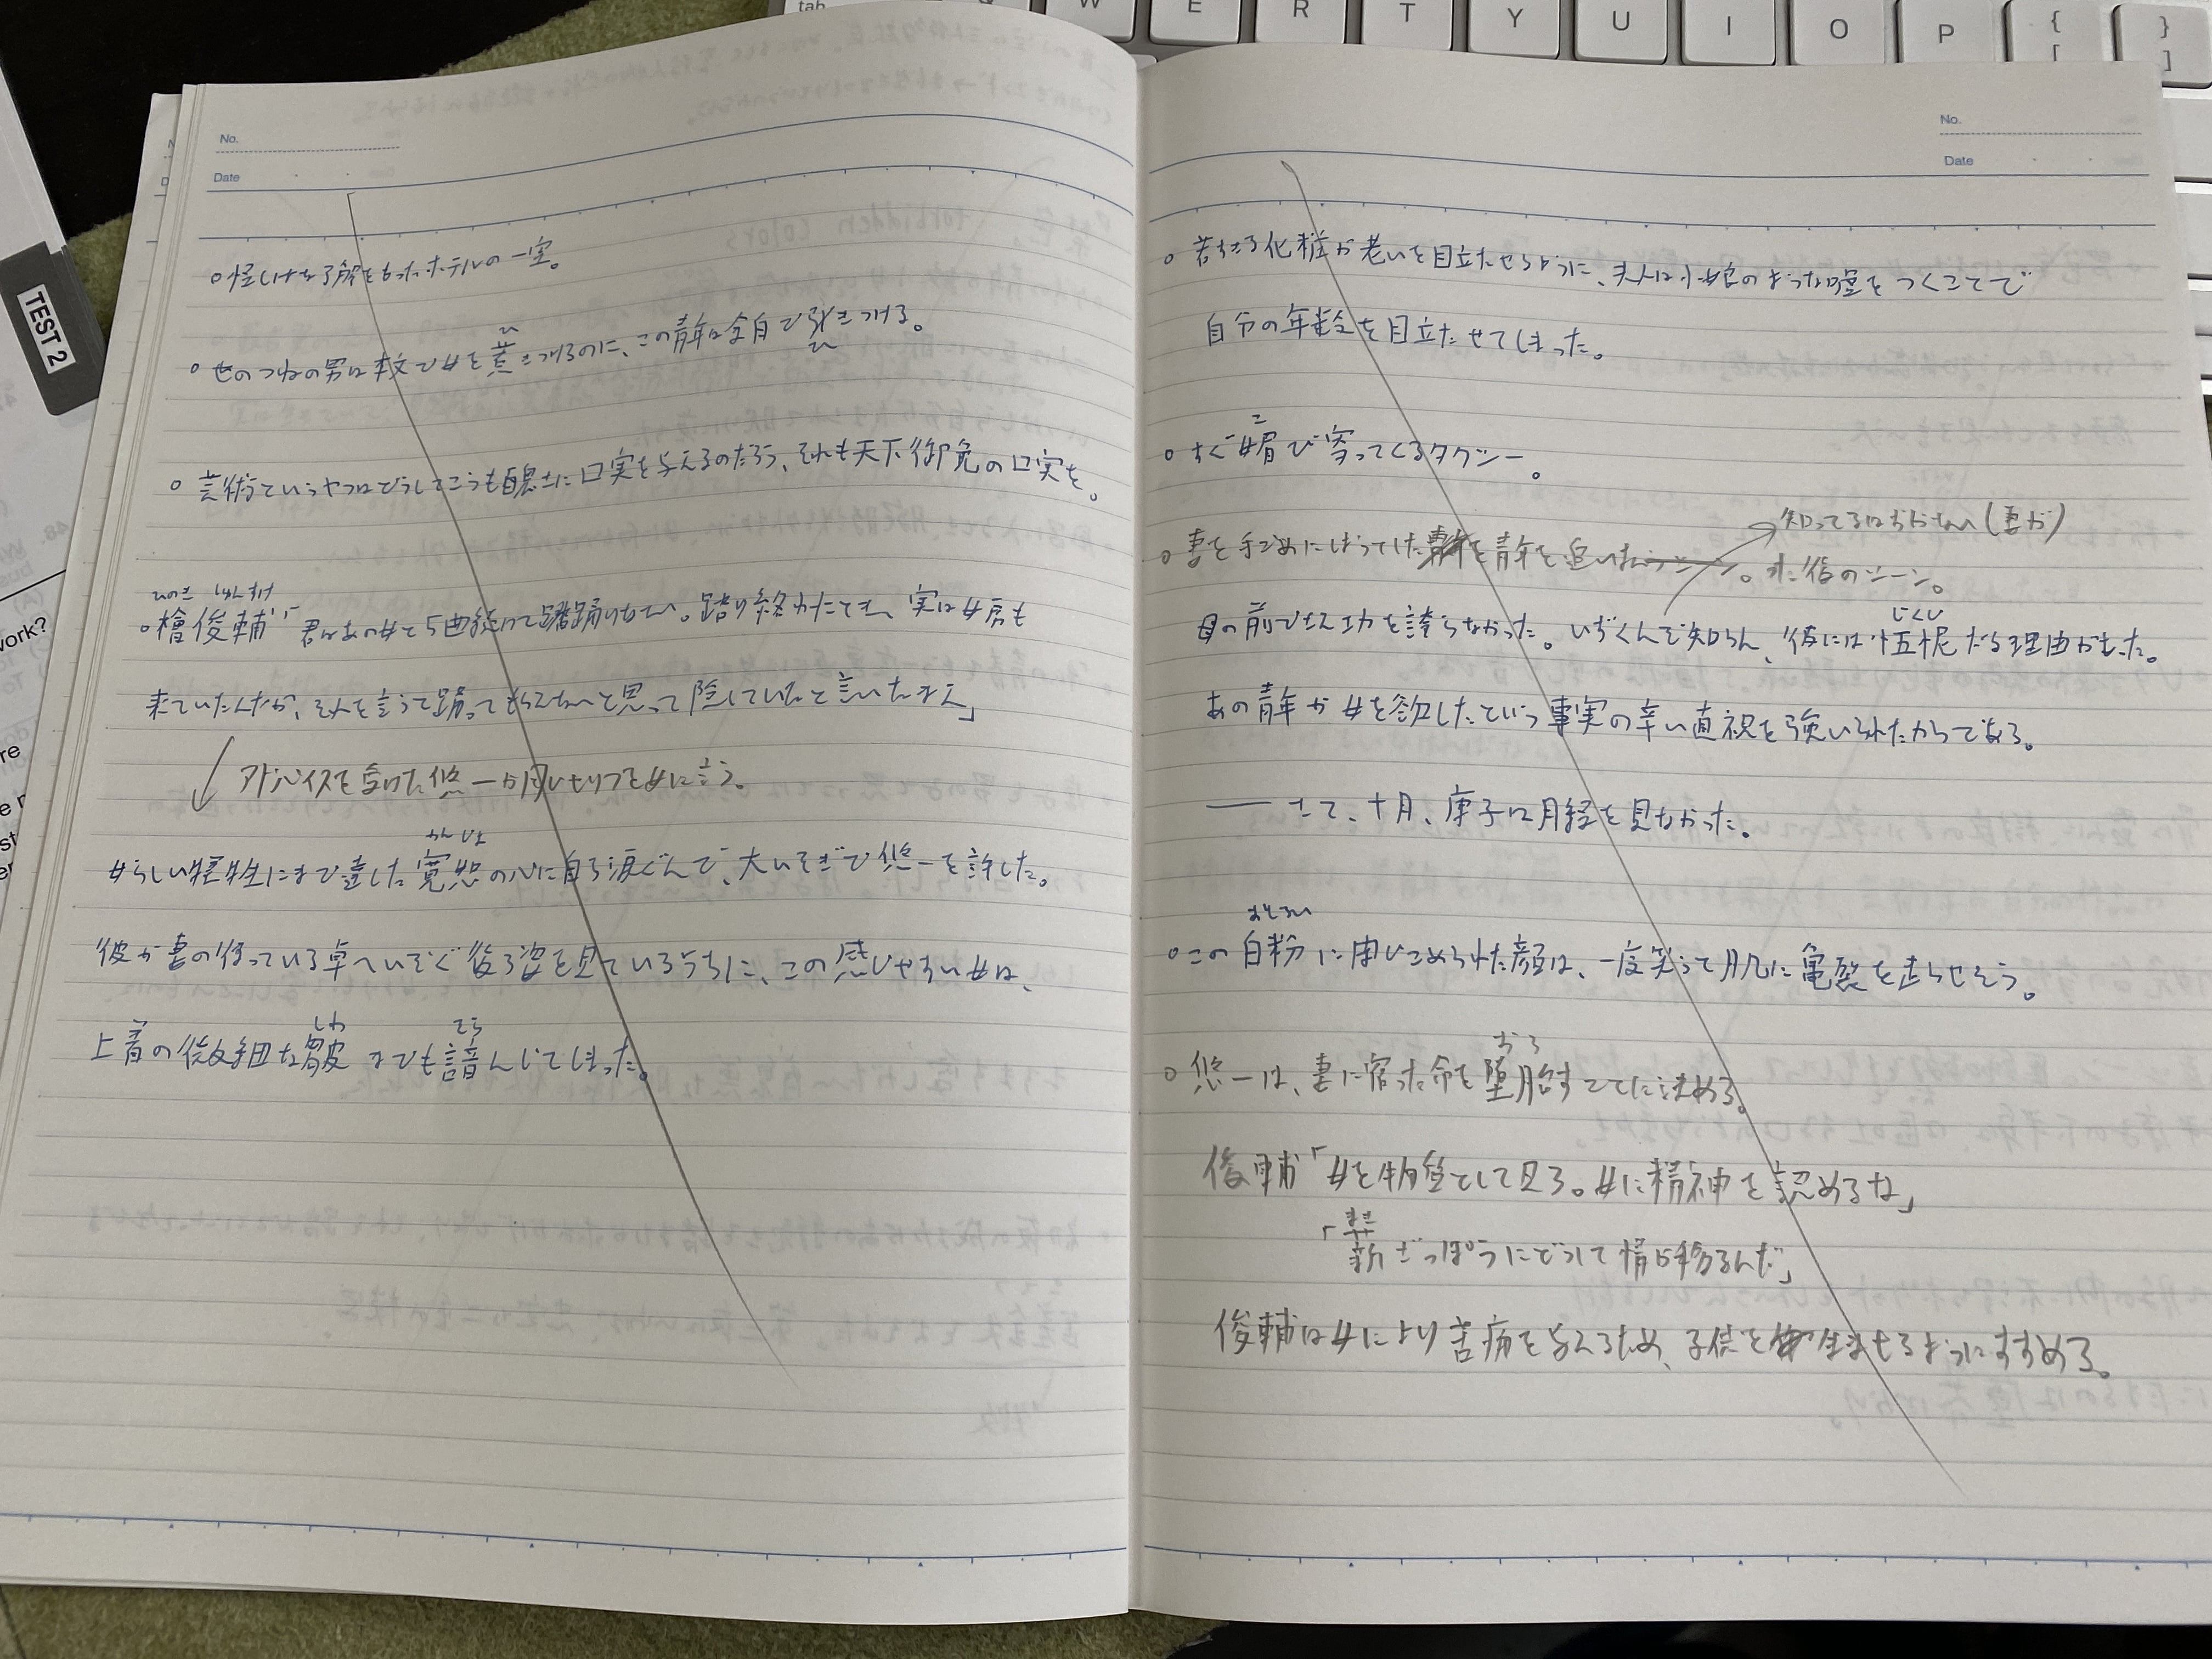 tab W E R T Y U I O P { [ } ]
TEST 2
48.
work?
No.
Date
。怪しげな了解をもったホテルの一室。
。世のつねの男は本文で女を惹きつけるのに、この青年は全身で引きつける。
ひ
ひ
。芸術というヤツはどうしてこうも醜さに口実を与えるのだろう、それも天下御免の口実を。
ひのき しゅんすけ
。檜俊輔「君はあの女と5曲続けて踊りたまえ。踊り終わたとき、実は女房も
来ていたんだが、それを言うと踊ってもらえないと思って隠していたと言いたまえ」
アドバイスを受けた悠一が同じセリフを女に言う。
かんじょ
女らしい犠牲にまで達した寛恕の心に自ら涙ぐんで、大いそぎで悠一を許した。
彼が妻の待っている卓へいそぐ後ろ姿を見ているうちに、この感じやすい女は、
しわ そら
上着の微細な皺までも諳んじてしまった。
No.
Date
。若すぎる化粧が老いを目立たせるように、夫人は小娘のような嘘をつくことで
自分の年齢を目立たせてしまった。
こ
。すぐ媚び寄ってくるタクシー。
知ってるはずがない(妻が)
。妻を手ごめにしようとした青年を青年を追い 。た後のシーン。
じくじ
母の前でさえ功を誇らなかった。いずくんぞ知らん、彼には忸怩たる理由があった。
あの青年が女を欲したという事実の辛い直視を強いられたからである。
―― さて、十月、康子は月経を見なかった。
おしろい
。この白粉に閉じこめられた顔は、一度笑って肌に亀裂を走らせそう。
おろ
。悠一は、妻に宿った命を堕胎すことに決める。
俊輔「女を物質として見ろ。女に精神を認めるな」
まき
「薪ざっぽうにどうして情が移るんだ」
俊輔は女により苦痛を与えるため、子供を生ませるようにすすめる。